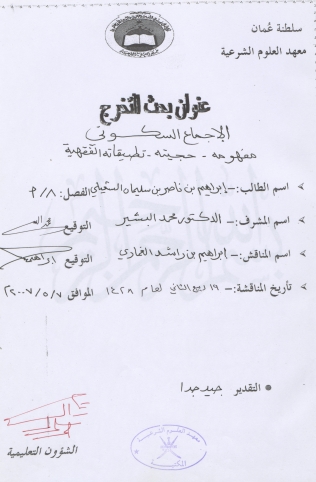 سلطنة عُمان
معهد العلوم الشرعية
عنوان بحث التخرج
الإجماع السكوتي
مفهومه - حجيته - تطبيقاته الفقهية
اسم الطالب:- إبراهيم بن ناصر بن سليمان الصقيلي الفصل: ٨/
اسم المشرف:- الدكتور محمد البشير التوقيع
اسم المناقش:- إبراهيم بن راشد الغماري التوقيع
تاريخ المناقشة:- ١٩ ربيع الثاني لعام ١٤٢٨ الموافق ٢٠٠٧/٥/٧
التقدير جيد جدا
الشؤون التعليمية
معهد العلوم الشرعية
المكتبة